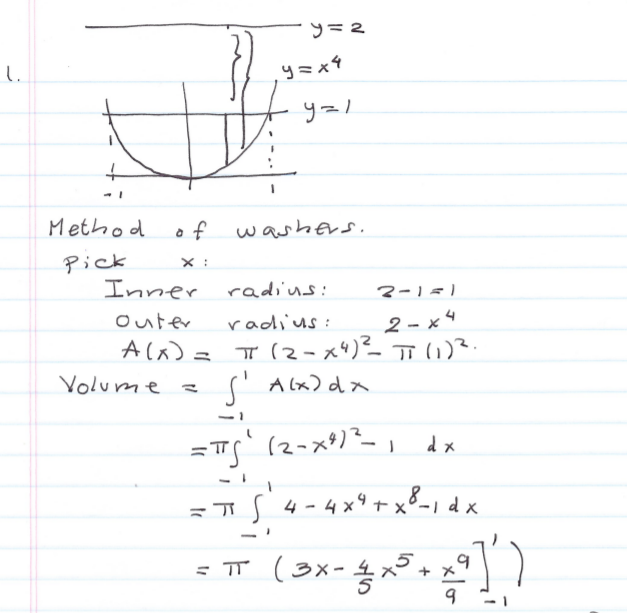 y=2
1.
y=x⁴
y=1
-1 1
Method of washers.
Pick x:
Inner radius: 2-1=1
Outer radius: 2-x⁴
A(x) = π(2-x⁴)² - π(1)².
Volume = ∫₋₁¹ A(x)dx
=π∫₋₁¹ (2-x⁴)²-1 dx
=π∫₋₁¹ 4-4x⁴+x⁸-1 dx
=π(3x-4/5 x⁵+x⁹/9]₋₁¹)